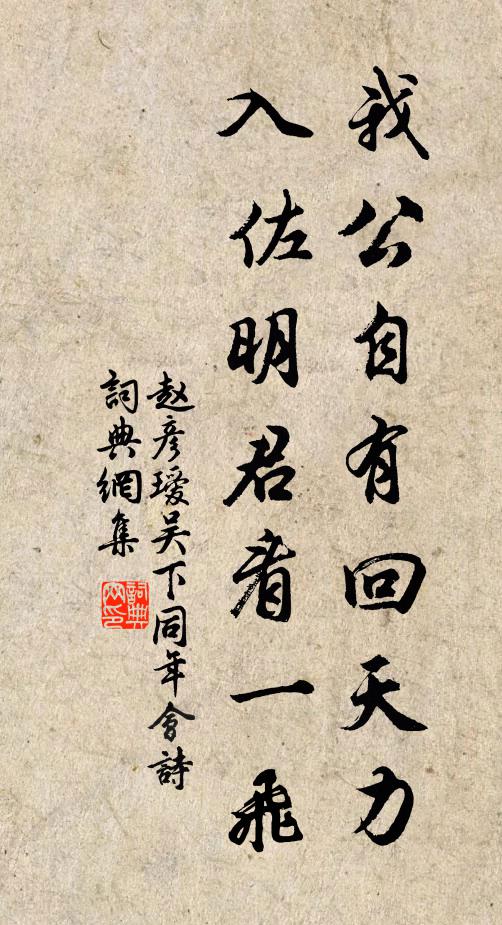 我公自有回天力
入佐明君看一飛
赵彦瑷吴下同年會詩
詞典網集
詞典網印